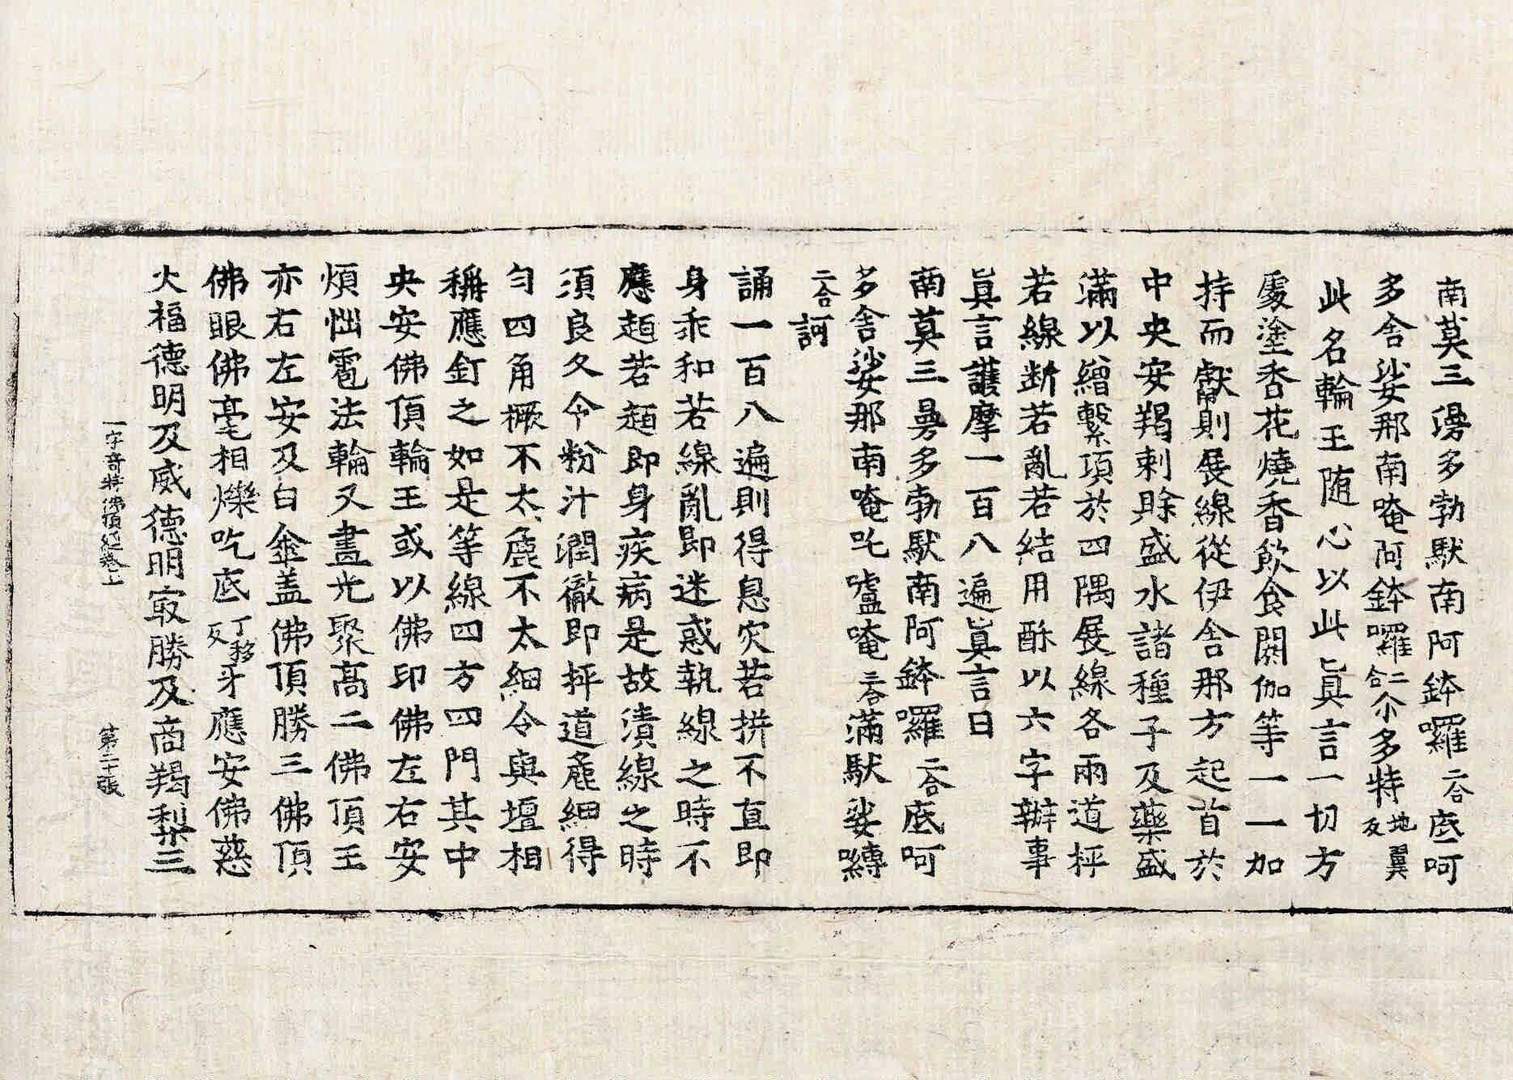 南莫三曼多勃馱南阿鉢囉二合底呵
多舍娑那南唵阿鉢囉二合尒多特地翼反
此名輪王随心以此眞言一切方
處塗香花燒香飲食閼伽等一一加
持而獻則展線從伊舍那方起首於
中央安羯剌賒盛水諸種子及藥盛
滿以繒繫項於四隅展線各兩道抨
若線斷若亂若結用酥以六字辦事
眞言護摩一百八遍眞言曰
南莫三曼多勃馱南阿鉢囉二合底呵
多舍娑那南唵吒嚧唵二合滿馱娑嚩
二合訶
誦一百八遍則得息灾若拼不直即
身乖和若線亂即迷惑執線之時不
應越若越即身疾病是故漬線之時
須良久令粉汁潤徹即抨道麁細得
勻四角橛不太麁不太細令與壇相
稱應釘之如是等線四方四門其中
央安佛頂輪王或以佛印佛左右安
煩惱雹法輪又畫光聚高二佛頂王
亦右左安及白傘盖佛頂勝三佛頂
佛眼佛毫相爍吃底丁移反牙應安佛慈
火福德明及威德明㝡勝及商羯梨三
一字奇特佛頂經卷上 第二十張